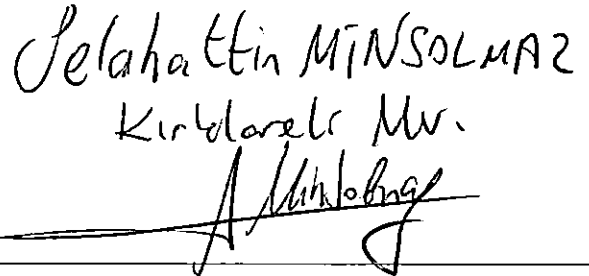 Selahattin MİNSOLMAZ
Kırklareli Mv.